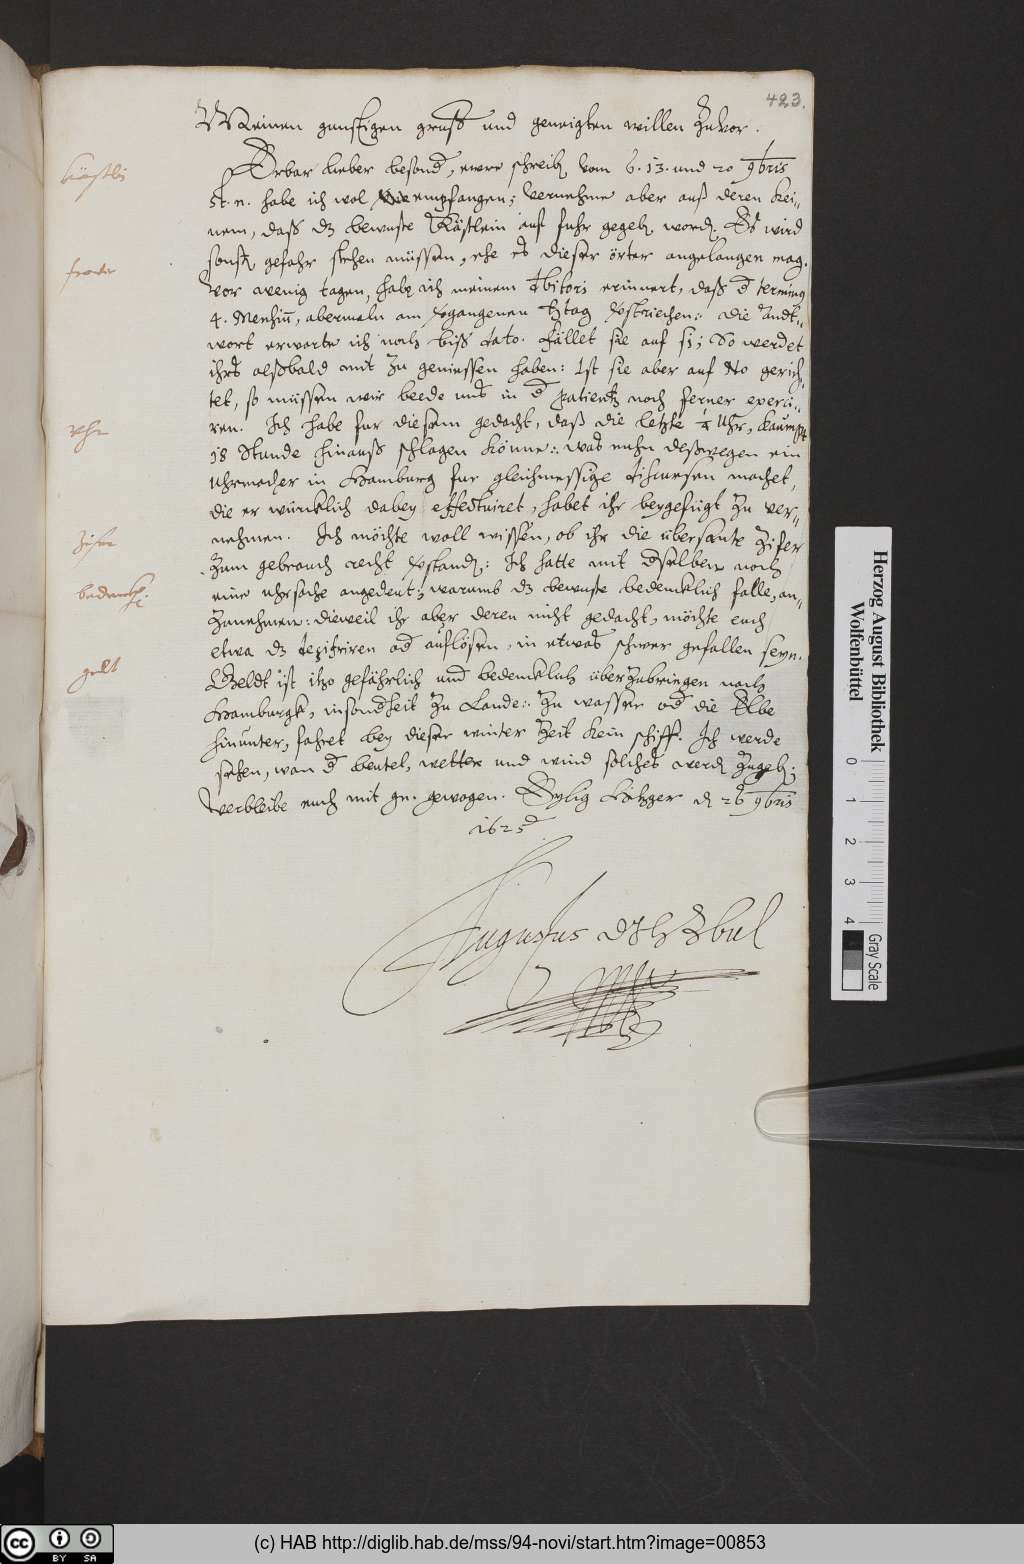 423.
Meinen gunstigen gruß und geneigten willen zuvor.
Erbar lieber besond, ewre schreib vom 6. 13. und 20 9bris
Kästlin
st. n. habe ich wol empfangen; vernehme aber auß deren kei-,
nem, daß dz bewuste Kästlein auf fuhr gegeb word. Es wird
sonst gefahr stehen müssen, ehe es dieser örter angelangen mag.
Vor wenig tagen, habe ich meinem erinnert, daß d terming
4. abermeln am vergangenen verstriechen: die andt-,
wort erwarte ich noch biß dato. Fället sie auf si; So werdet
ihrs alßbald mit zu geniessen haben: Ist sie aber auf No gerich-,
tet, so müssen wir beede uns in d patientz noch ferner exerci-,
ren. Ich habe fur diesem gedacht, daß die letzte 1/4 Uhr,
Uhr
18 Stunde hinauß schlagen könne: was nuhn deßwegen ein
Uhrmacher in Hamburg fur gleichmessige machet,
die er würcklich dabey effectuiret, habet ihr beygefügt zu ver-,
nehmen. Ich möchte woll wissen, ob ihr die übersante Zifer
Zifer
zum gebrauch recht verstand: Ich hatte mit dselben noch
eine uhrsache angedeut, warumb dz bewuste bedencklich falle, an-,
zunehmen: dieweil ihr aber deren nicht gedacht, möchte euch
etwa dz dezifriren od auflösen, in etwas schwer gefallen seyn.
geldt
Geldt ist itzo gefährlich und bedencklich überzubringen nach
Hamburgk, insondheit zu Lande: Zu wasser od die Elbe
hinunter, fahret bey dieser winter Zeit kein schiff. Ich werde
sehen, wan d beutel, wetter und wind solches werd zugeb;
Verbleibe euch mit gn. gewogen. Eylig Hitzger d 26 9bris
1625
Augustus DJh Zbul
Herzog August Bibliothek
Wolfenbüttel
0 1 2 3 4
Gray Scale
cc BY SA
(c) HAB http://diglib.hab.de/mss/94-novi/start.htm?image=00853